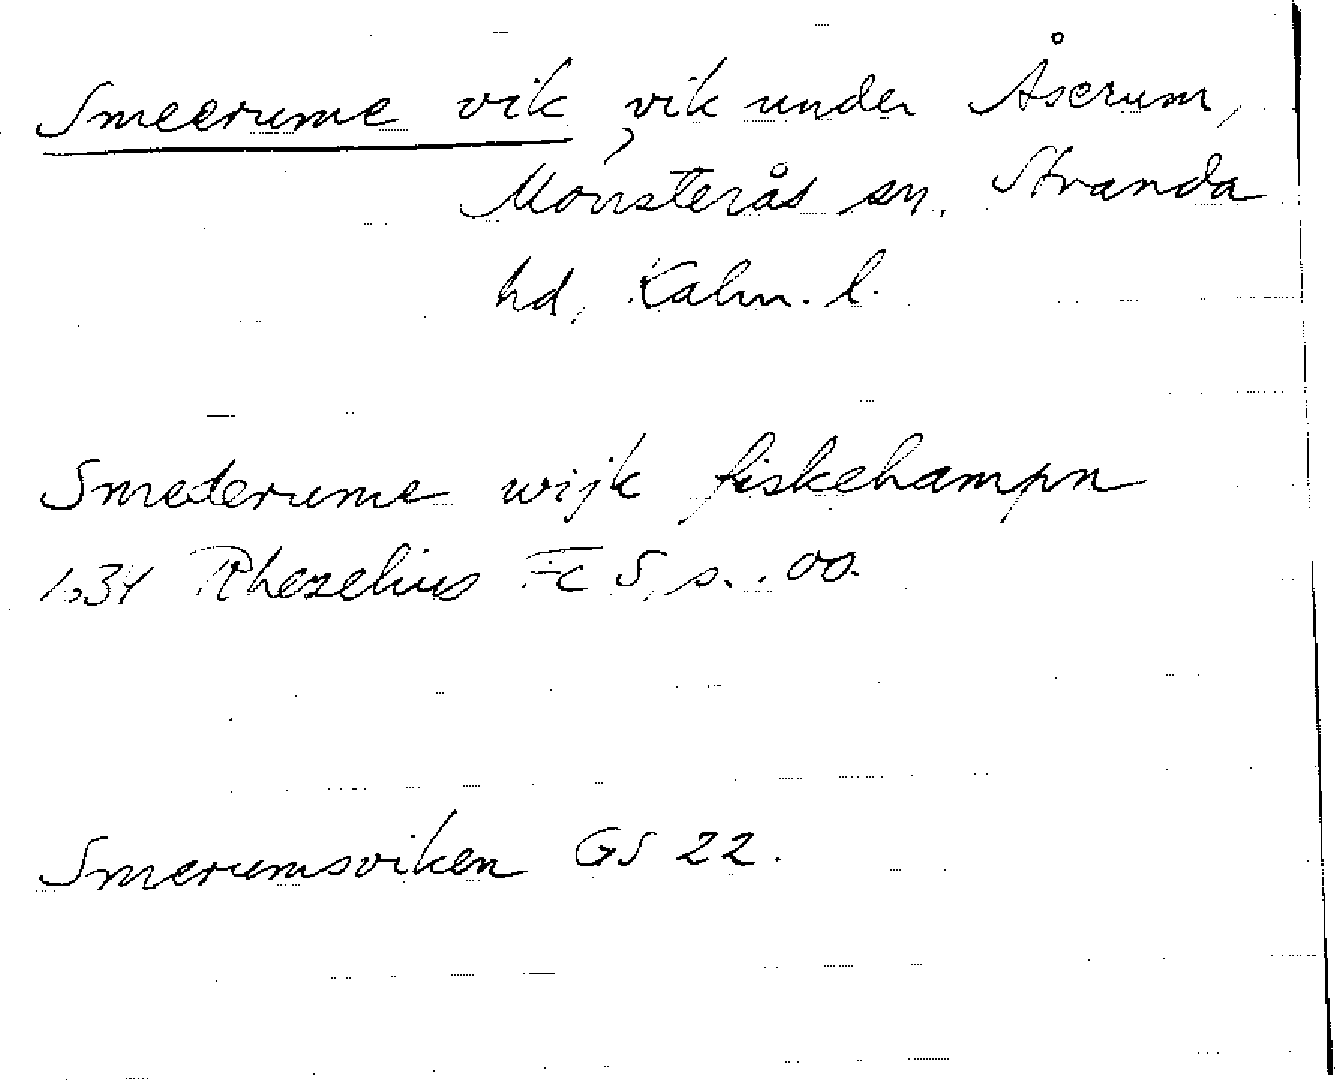 Smeerume vik, vik under Åserum,
Mönsterås sn, Stranda
hd, Kalm. l.
Smederume wijk fiskehampn
1634 Rhezelius Fc 5, s. 00.
Smerumsviken GS 22.